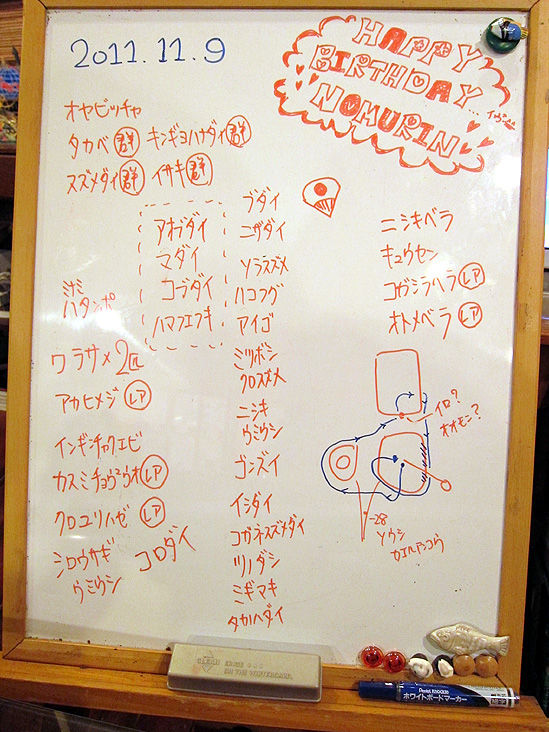 2011.11.9
HAPPY
BIRTHDAY...
NOMURIN
オヤビッチャ
タカベ 群 キンギョハナダイ 群
スズメダイ 群 イサキ 群
アオブダイ
マダイ
コブダイ
ハマフエフキ
ミナミ
ハタンポ
ワラサ×2匹
アカヒメジ レア
インギンチャクエビ
カスミチョウチョウウオ レア
クロユリハゼ レア
シロウサギ
ウミウシ
コロダイ
ブダイ
ニザダイ
ソラスズメ
ハコフグ
アイゴ
ミツボシ
クロスズメ
ニシキ
ウミウシ
ゴンズイ
イシダイ
コガネスズメダイ
ツノダシ
ミギマキ
タカノハダイ
ニシキベラ
キュウセン
コガシラベラ レア
オトメベラ レア
イロ?
オオモン?
-28
ソウシ
カエルアンコウ
Pentel KNOCKLE
ホワイトボードマーカー